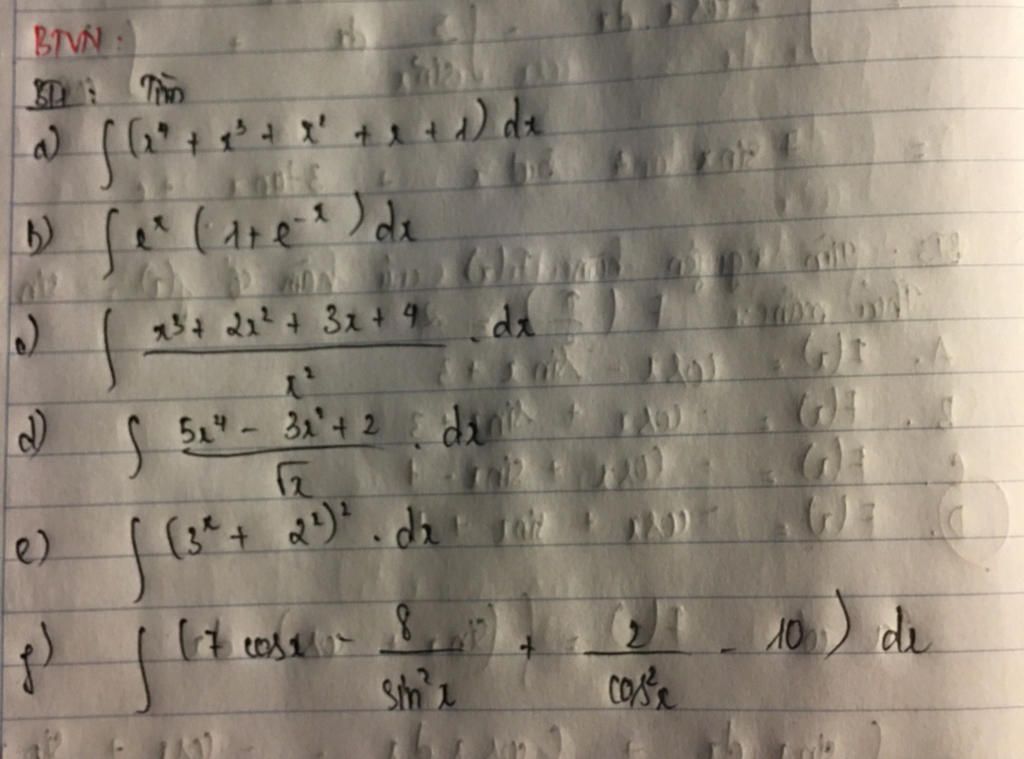 BTVN :
BT1 : Tìm
a) ∫ (x⁴ + x³ + x² + x + 1) dx
b) ∫ eˣ ( 1 + e⁻ˣ ) dx
c) ∫ (x³ + 2x² + 3x + 4)/x² . dx
d) ∫ (5x⁴ - 3x² + 2)/√x . dx
e) ∫ (3ˣ + 2ˣ)² . dx
f) ∫ (7 cosx - 8/sin²x + 2/cos²x - 10) dx